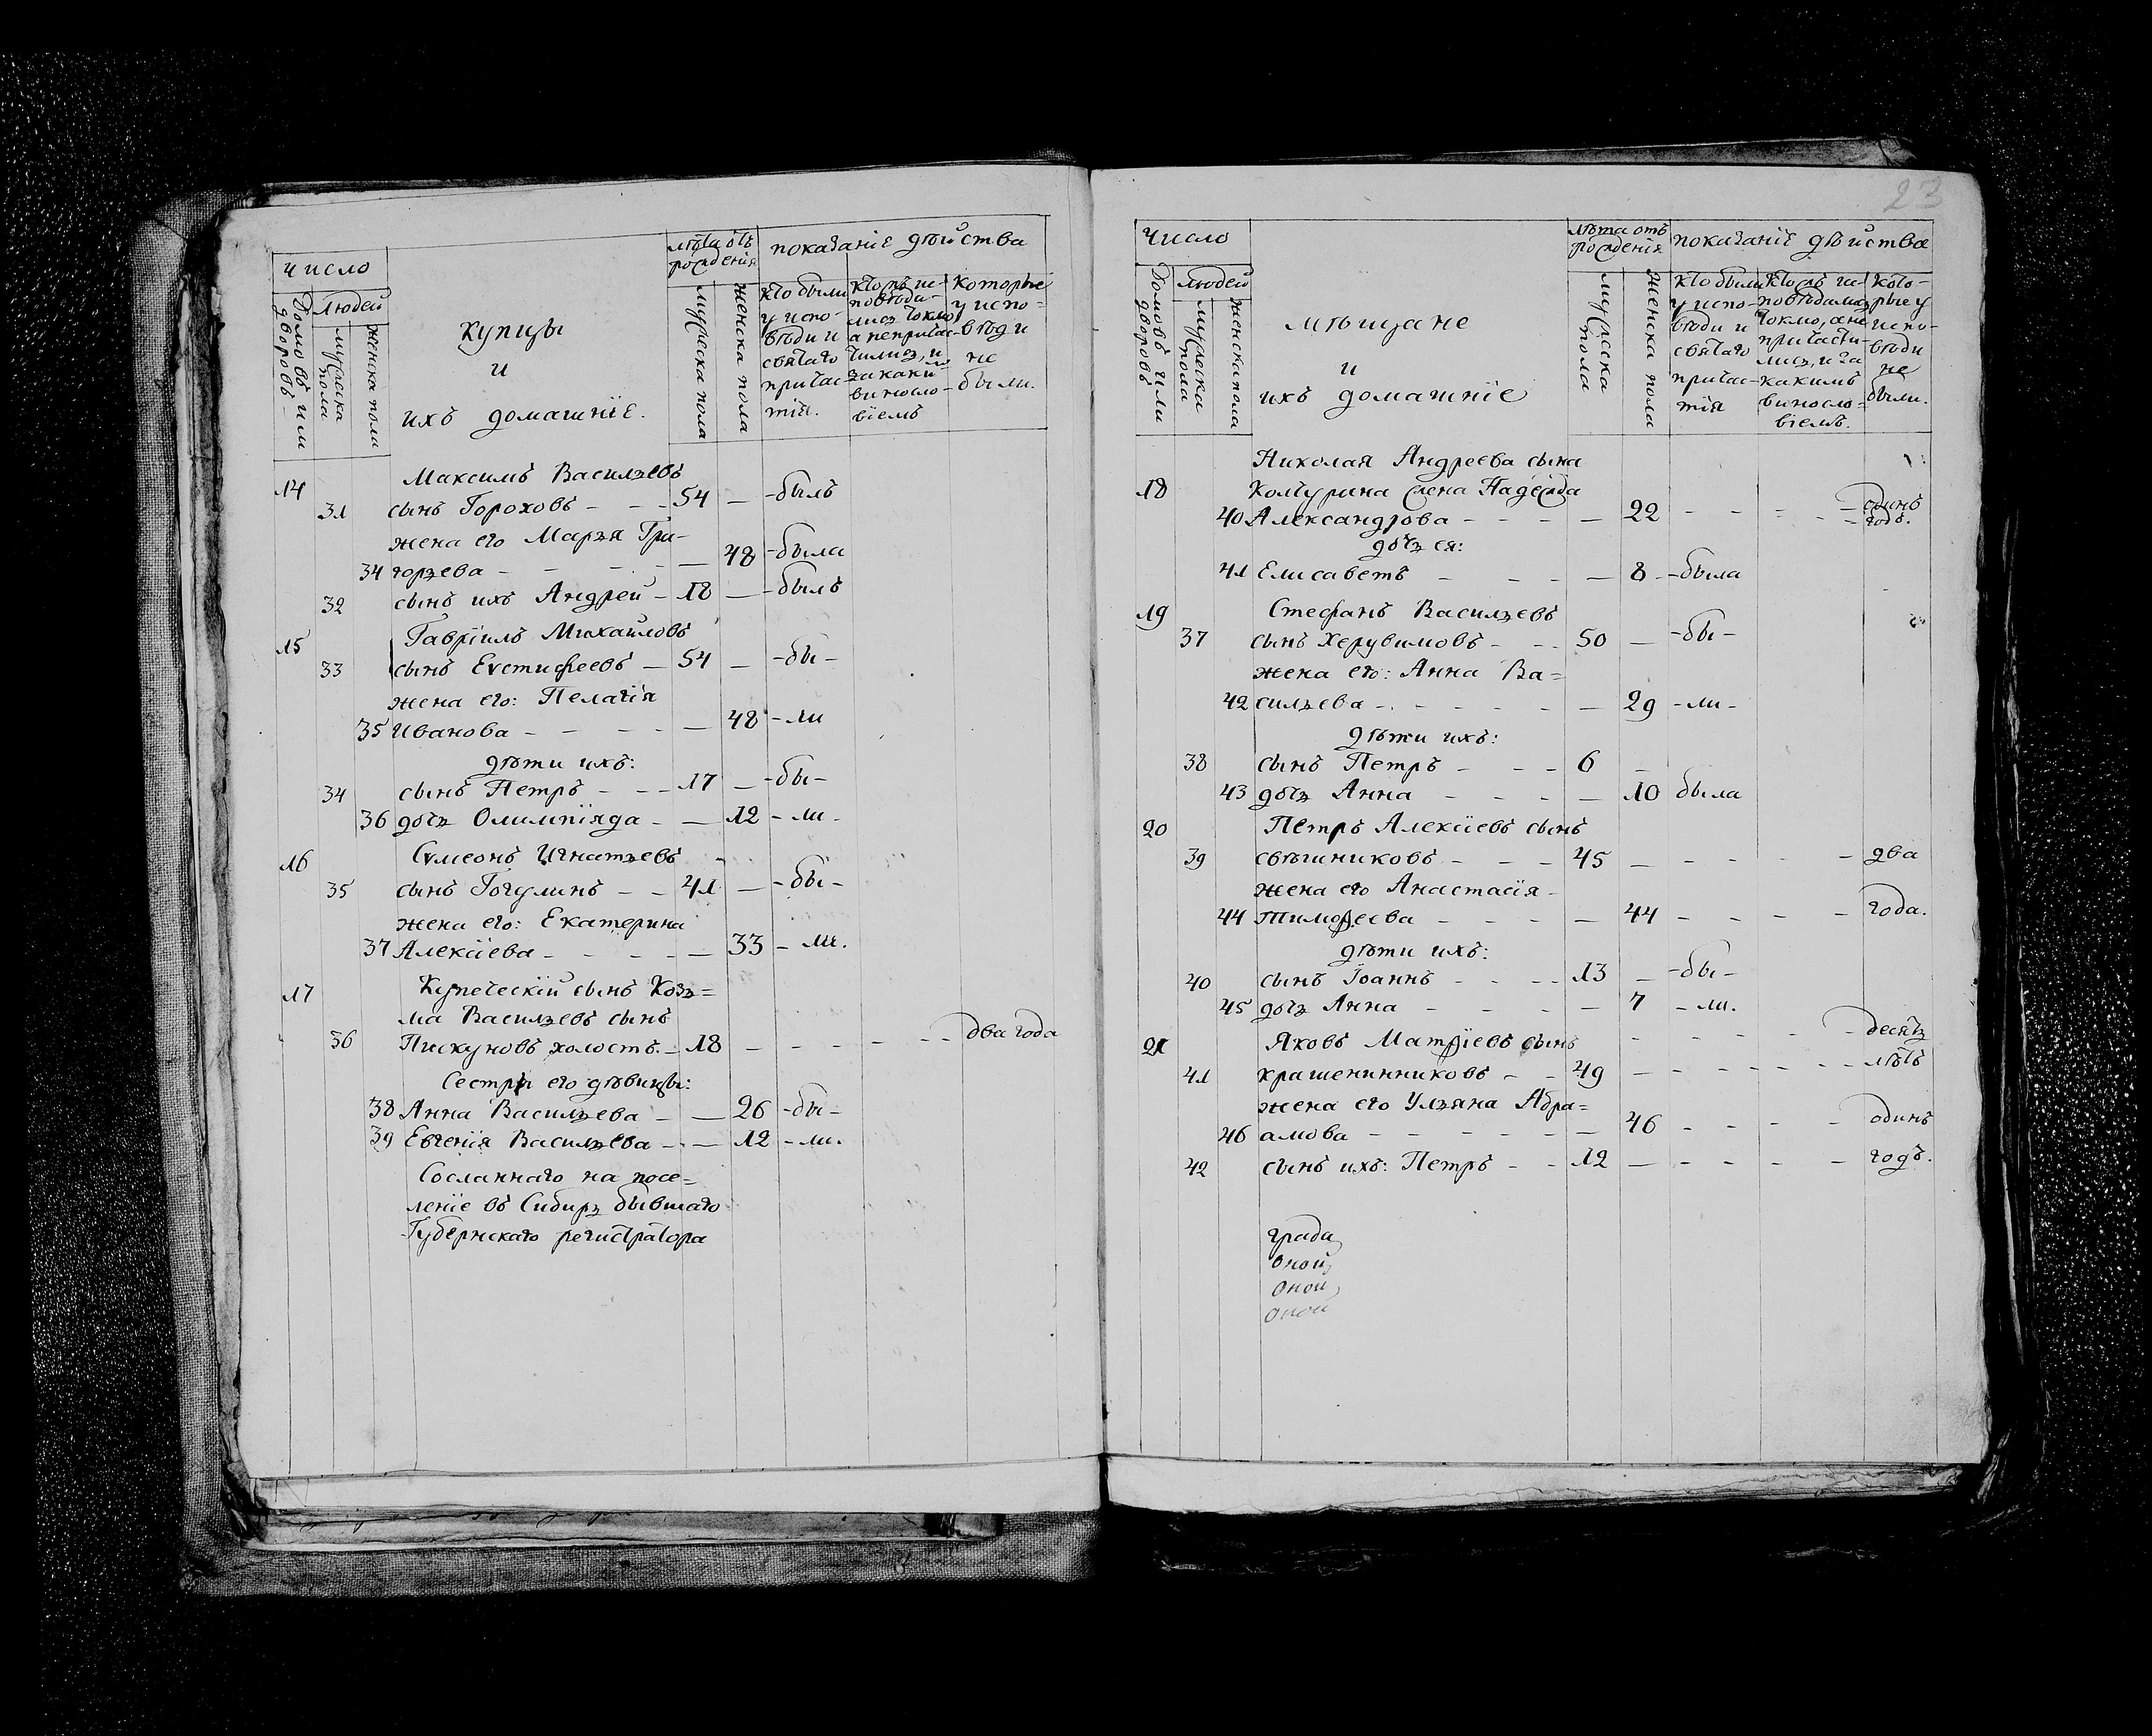 число
Домовъ или дворовъ
Людей
мужеска пола
женска пола
купцы
и
ихъ домашніе.
лѣта отъ рожденія
мужеска пола
женска пола
показаніе дѣйства
кто были
у испо-
вѣди и
святаго
причас-
тія.
кто исповѣда-
лись токмо,
а непричас-
тились, и
за каки-
винносло-
віемъ
которые
у испо-
вѣди
не
были.
14 Максимъ Васильевъ
31 сынъ Гороховъ - - - 54 — -былъ
жена его Марья Гри-
34 горьева - - - - — 48 -была
32 сынъ ихъ Андрей - 18 — -былъ
15 Гавріилъ Михайловъ
33 сынъ Евстифеевъ — 54 — -бы-
жена его: Пелагія
35 Иванова - - - - — 48 -ли
дѣти ихъ:
34 сынъ Петръ - - - 17 — -бы-
36 дочь Олимпіяда - — 12 - ли -
16 Сѵмеонъ Игнатьевъ
35 сынъ Гогулинъ - - 41 — -бы-
жена его: Екатерина
37 Алексіева - - - - — 33 - ли.
17 Купеческій сынъ Козь=
ма Васильевъ сынъ
36 Пискуновъ холостъ. - 18 - - - - - - два года
Сестры его дѣвицы:
38 Анна Васильева - — 26 -бы-
39 Евгенія Васильева - — 12 - ли.
Сосланнаго на посе=
леніе въ Сибирь бывшаго
Губернскаго регистратора
23
число
Домовъ или дворовъ
Людей
мужеска пола
женска пола
мѣщане
и
ихъ домашніе
лѣта отъ рожденія
мужеска пола
женска пола
показаніе дѣйства
кто были
у испо-
вѣди и
святаго
причас-
тія
исповѣдались
токмо, а не
причасти-
лись, и за
какимъ
винносло=
віемъ.
кото-
рые у
испо-
вѣди
не
были.
Николая Андреева сына
18 жена Надежда
40 Александрова - - - - — 22 - - - - - одинъ годъ.
дочь ея:
41 Елисаветъ - - - — 8 - -была
19 Стефанъ Васильевъ
37 сынъ Херувимовъ - - - 50 — -бы-
жена его: Анна Ва=
42 сильева - - - - - — 29 -ли-
дѣти ихъ:
38 сынъ Петръ - - - 6 -
43 дочь Анна - - - — 10 была
20 Петръ Алексіевъ сынъ
39 свѣшниковъ - - - 45 — - - - два
жена его Анастасія -
44 Тимоѳеева - - - - — 44 - - - - года.
дѣти ихъ:
40 сынъ Іоаннъ - - - - 13 — -бы-
45 дочь Анна - - - - — 7 - ли.
21 Яковъ Матѳіевъ сынъ - - - - - десять
41 крашенинниковъ - - 49 — - - - - - - лѣтъ
жена его Ульяна Абра=
46 амова - - - - - — 46 - - - - одинъ
42 сынъ ихъ: Петръ - - 12 — - - - годъ.
града
оной,
оной,
оной